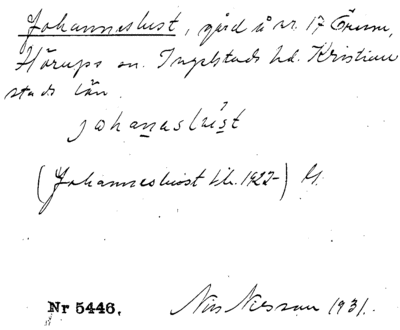 Johanneslust, gård å nr 17 Örum,
Hörups sn. Ingelstads hd. Kristian
stads län.
johanaslust
(Johanneslust bl. 1922-) G.
Nr 5446. Nils Nilsson 1931.